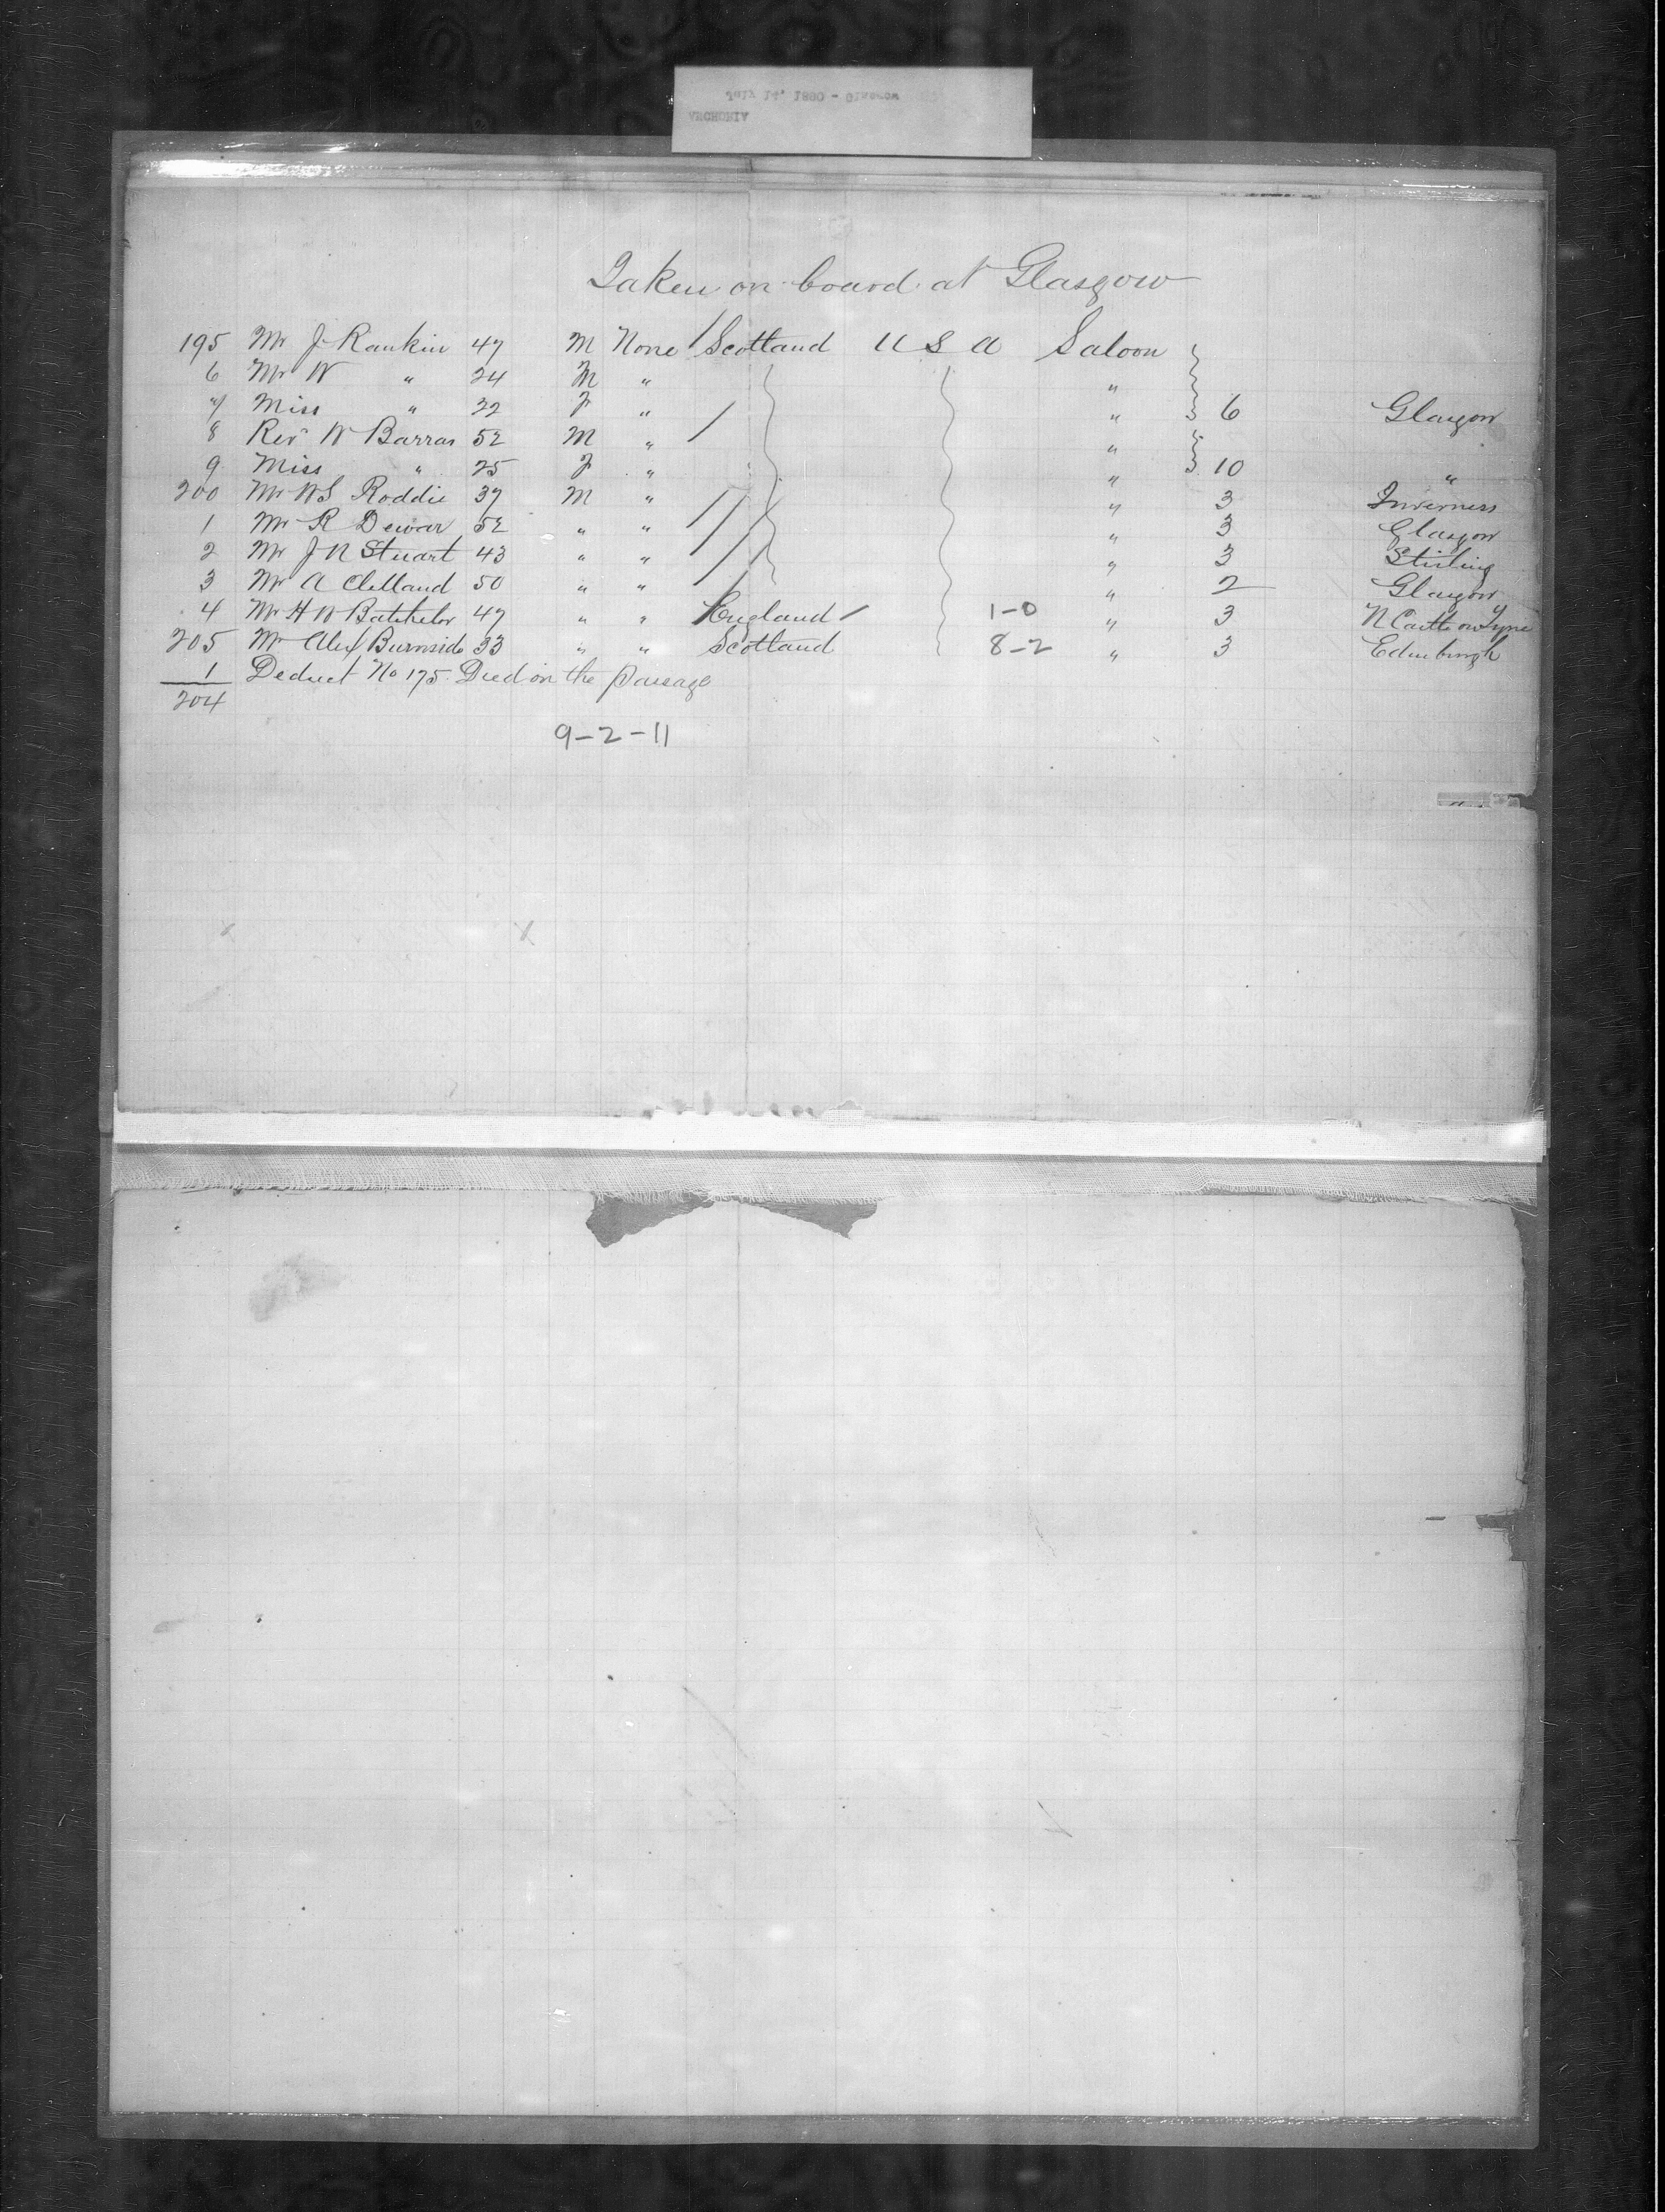 Taken on board at Glasgow
195 Mr J Rankin 47 M None Scotland U S A Saloon
6 Mr W " 24 M " "
7 Miss " 22 F " " 6 Glasgow
8 Rev W Barras 52 M " "
9 Miss " 25 F " " 10 "
200 Mr W S Roddie 37 M " " 3 Inverness
1 Mr R Dewar 52 " " " 3 Glasgow
2 Mr J N Stuart 43 " " " 3 Stirling
3 Mr A Clelland 50 " " " 2 Glasgow
4 Mr H W Batchelor 47 " " England 1-0 " 3 N Castle on Tyne
205 Mr Alex Burnside 33 " " Scotland 8-2 " 3 Edinburgh
1 Deduct No 175 Died on the passage
204
9-2-11